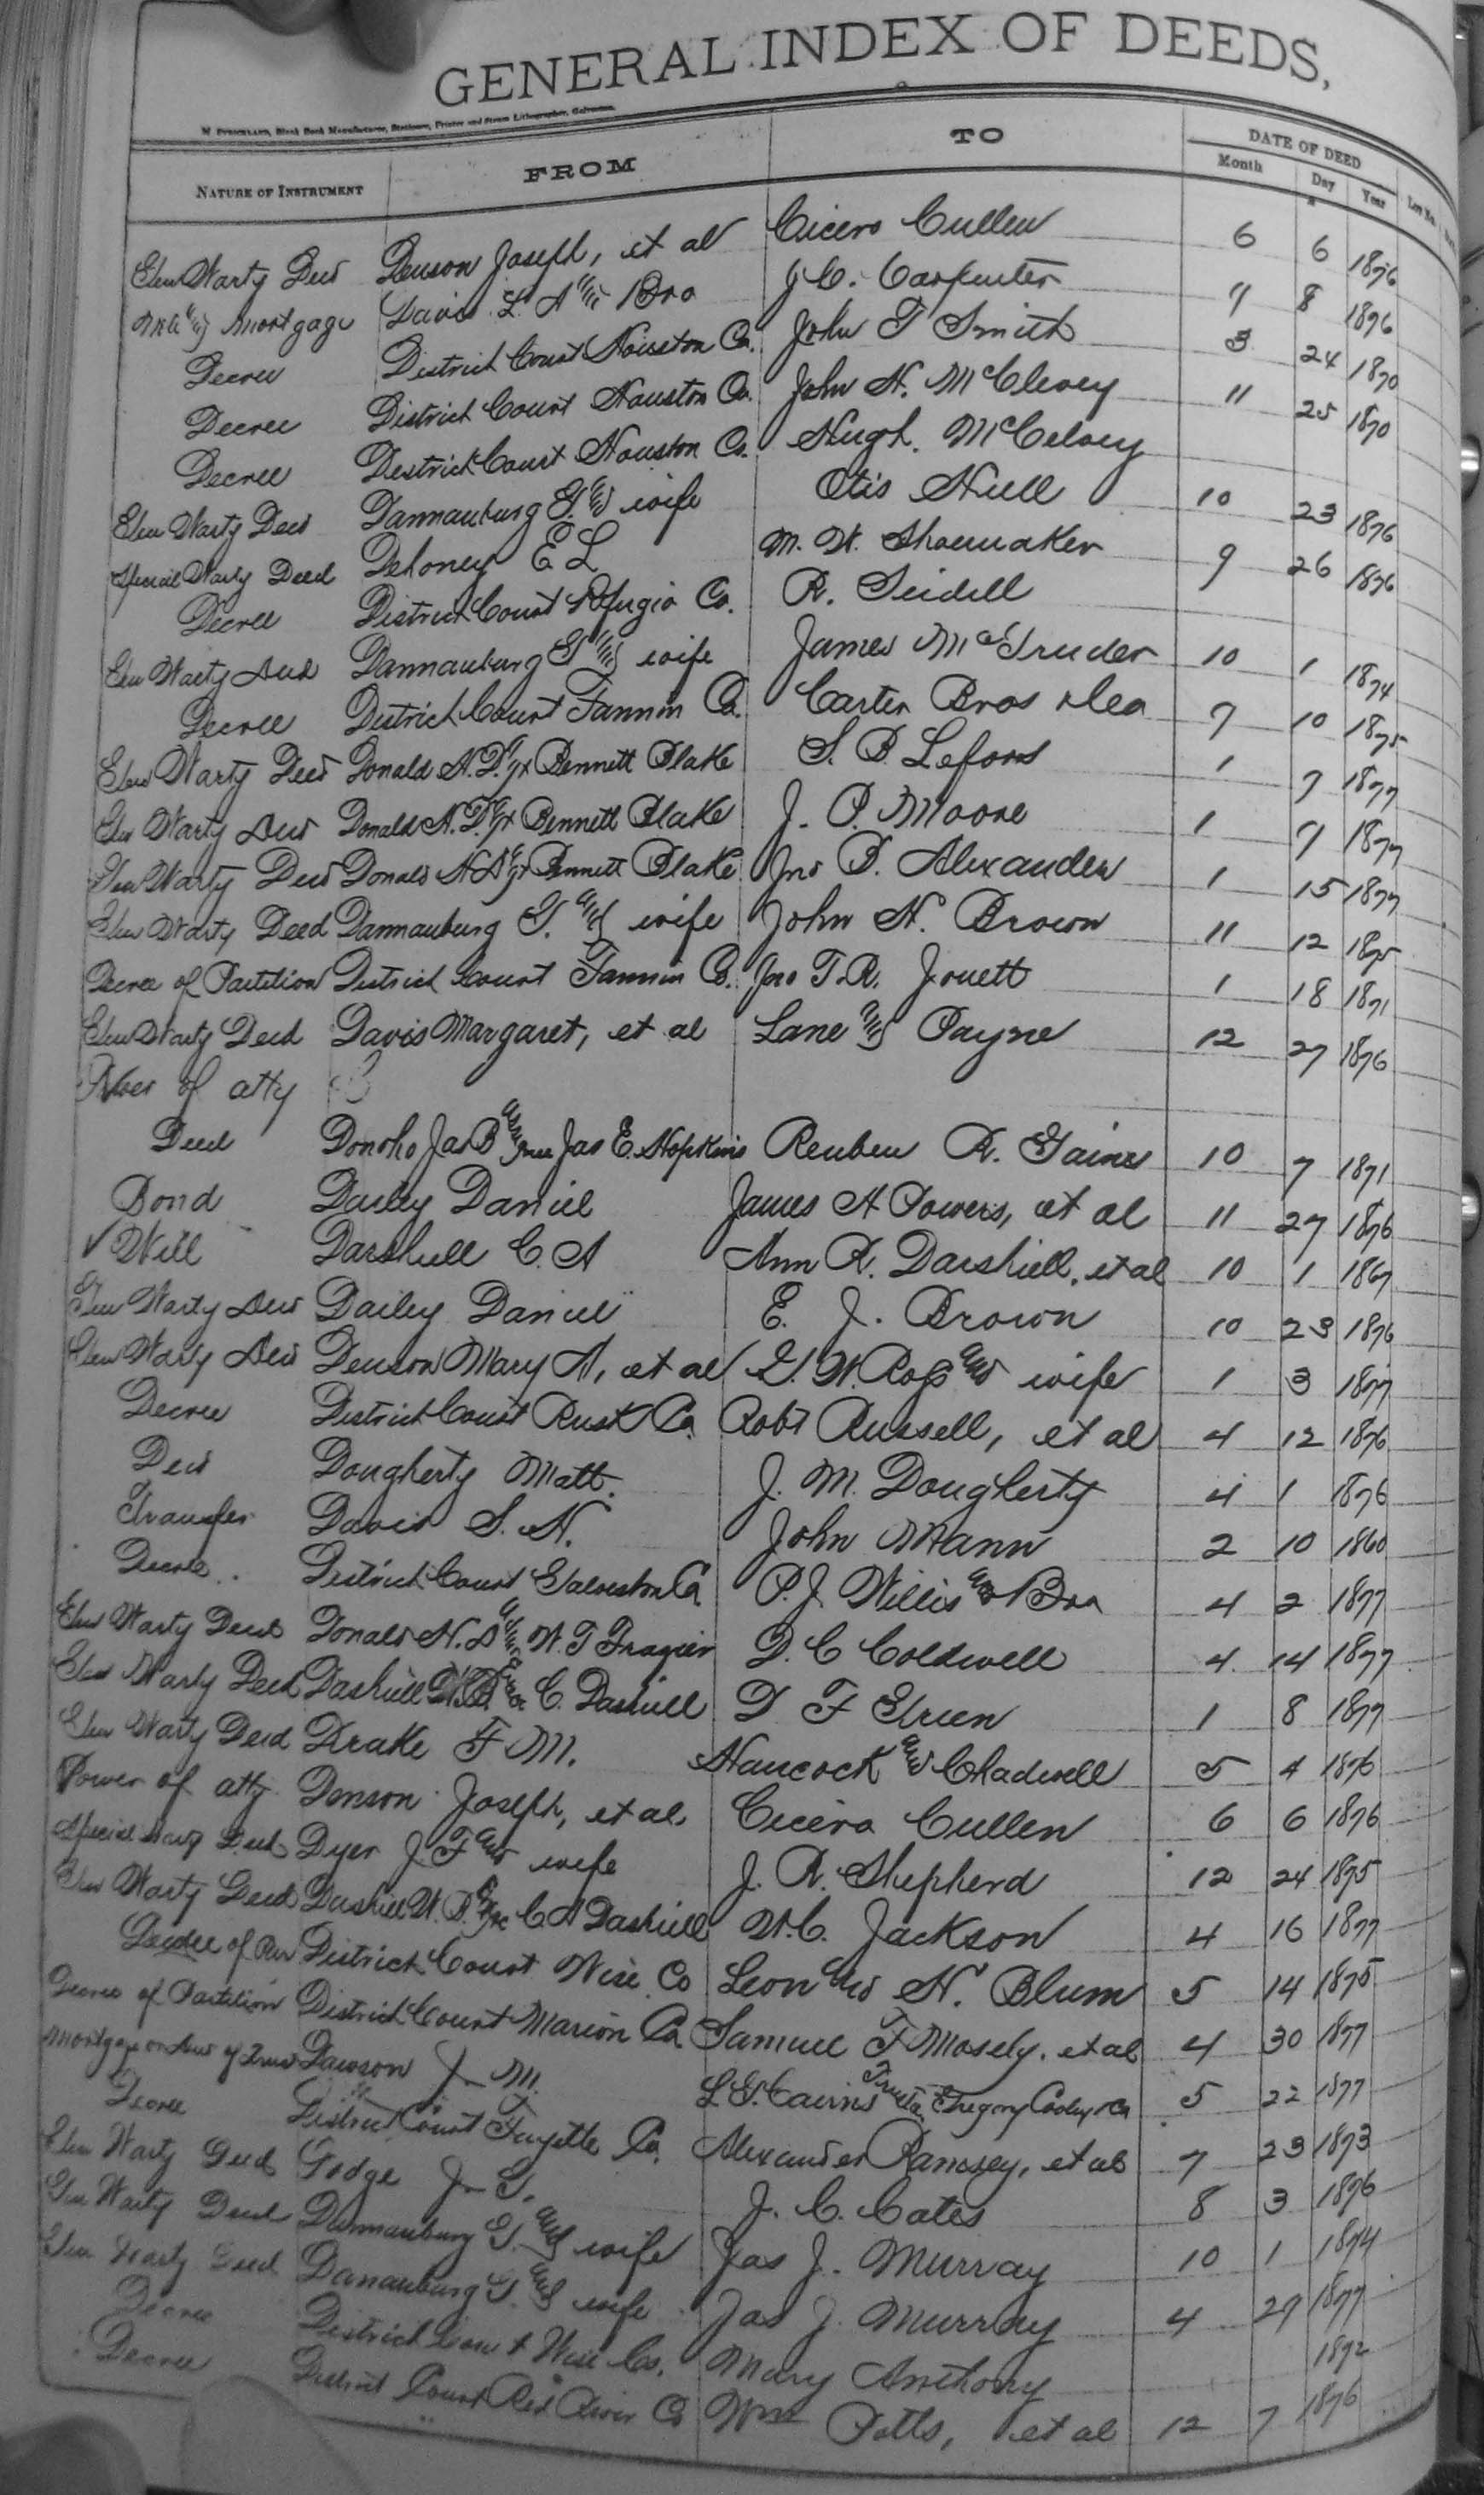 GENERAL INDEX OF DEEDS,
W STRICKLAND, Blank Book Manufacturer, Stationer, Printer and Steam Lithographer, Galveston.
NATURE OF INSTRUMENT FROM TO DATE OF DEED
Month Day Year
Gen Warty Deed Denson Joseph, et al Cicero Cullen 6 6 1876
Mortgage Davis L. A and Bro J. C. Carpenter 7 8 1876
Decree District Court Houston Co. John T Smith 3 24 1870
Decree District Court Houston Co. John H. McClevey 11 25 1870
Decree District Court Houston Co. Hugh. McCelvey
Gen Warty Deed Dannanburg G. and wife Otis Hull 10 23 1876
Special Warty Deed Dehoney E L M. W. Shoemaker 9 26 1876
Decree District Court Refugio Co. R. Seidell
Gen Warty Deed Dannanburg G and wife James McGruder 10 1 1874
Decree District Court Fannin Co. Carter Bros & Co 7 10 1875
Gen Warty Deed Donald H. D. Bennett Blake S. B. Lefors 1 7 1877
Gen Warty Deed Donald H. D. Bennett Blake J. P. Moore 1 7 1877
Gen Warty Deed Donald H D Bennett Blake Jno B. Alexander 1 15 1877
Gen Warty Deed Dannanburg G. and wife John H. Brown 11 12 1875
Decree of Partition District Court Fannin Co. Jno T. R. Jouett 1 18 1871
Gen Warty Deed Davis Margaret, et al Lane and Payne 12 27 1876
Power of atty
Deed Donoho Jas B Jas E. Hopkins Reuben R. Gaines 10 7 1871
Bond Dailey Daniel James A Powers, et al 11 27 1876
✓ Will Darshiell C. A Ann R. Darshiell, et al 10 1 1867
Gen Warty Deed Dailey Daniel E. J. Brown 10 23 1876
Gen Warty Deed Denson Mary A, et al G. W. Ross and wife 1 3 1877
Decree District Court Rusk Co. Robt Russell, et al 4 12 1876
Deed Dougherty Matt. J. M. Dougherty 4 1 1876
Transfer Davis S. H. John Mann 2 10 1860
Decree District Court Galveston Co P. J. Willis and Bro 4 2 1877
Gen Warty Deed Donald H. D W. T Frazier D. C Coldwell 4 14 1877
Gen Warty Deed Dashiell C. Dashiell D F Green 1 8 1877
Gen Warty Deed Drake F M. Hancock and Chadwell 5 4 1876
Power of atty Denson Joseph, et al. Cicero Cullen 6 6 1876
Special Warty Deed Dyer J. F and wife J. R. Shepherd 12 24 1875
Gen Warty Deed Dashiell W. B. C A Dashiell W. C. Jackson 4 16 1877
Decree of District Court Wise Co Leon and H. Blum 5 14 1875
Decree of Partition District Court Marion Co. Samuel F Mosely. et al 4 30 1877
Mortgage or Deed of Trust Dawson J M. L. G. Cairns Trustee Gregory Cooley & Co 5 22 1877
Decree District Court Fayette Co. Alexander Ramsey, et al 7 23 1873
Gen Warty Deed Dodge J G. J. C. Cates 8 3 1876
Gen Warty Deed Dannanburg G. and wife Jas J. Murray 10 1 1874
Gen Warty Deed Dannanburg G. and wife Jas J. Murray 4 27 1877
Decree District Court Wise Co. Mary Anthony 1872
Decree District Court Red River Co Wm Potts, et al 12 7 1876